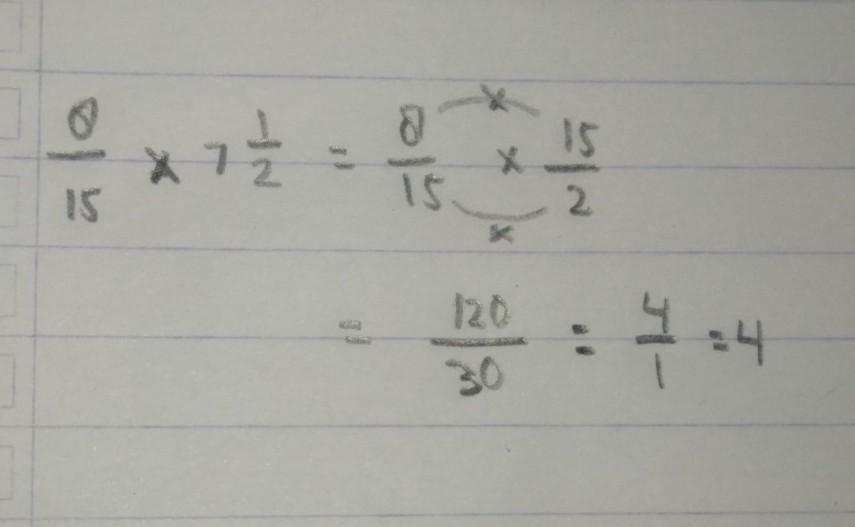 8/15 × 7 1/2 = 8/15 × 15/2
= 120/30 = 4/1 = 4